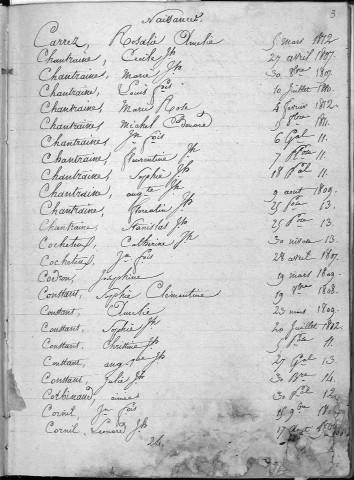 Naissances 3
Carrez, Rosalie Amélie 5 mars 1812
Chantraine, Cécile Jh 27 avril 1807.
Chantraines, Marie Jh 30 8bre 1807.
Chantraine, Louis Fçois 10 Juillet 1810.
Chantraine, Marie Rose 4 février 1812
Chantraines Michel Bénard 5 8bre 1811.
Chantraine Jn Fçois 6 11.
Chantraine, Florentine Jh 7 11.
Chantraine, Sophie Jh 18 11.
Chantraine, aug.te Jh 9 aout 1809.
Chantraine, Florentin Jh 25 13.
Chantraine Stanislas Jh 25 13.
Cocheteux, Catherine Jh 30 nivose 13.
Cocheteux, Jn Fçois 28 avril 1807.
Codron, Joséphine 19 mars 1809.
Constant, Sophie Clémentine 19 1808.
Constant, Amélie 23 mars 1809.
Constant, Sophie Jh 20 Juillet 1812.
Constant, Christine Jh 11.
Constant, aug.que Jh 27 13
Constant, Julie Jh 30 Bre 14.
Corbinaud, aimée 30 12.
Cornil Jn Fçois 15 9bre
Cornil, Léonard Jh 17
24.